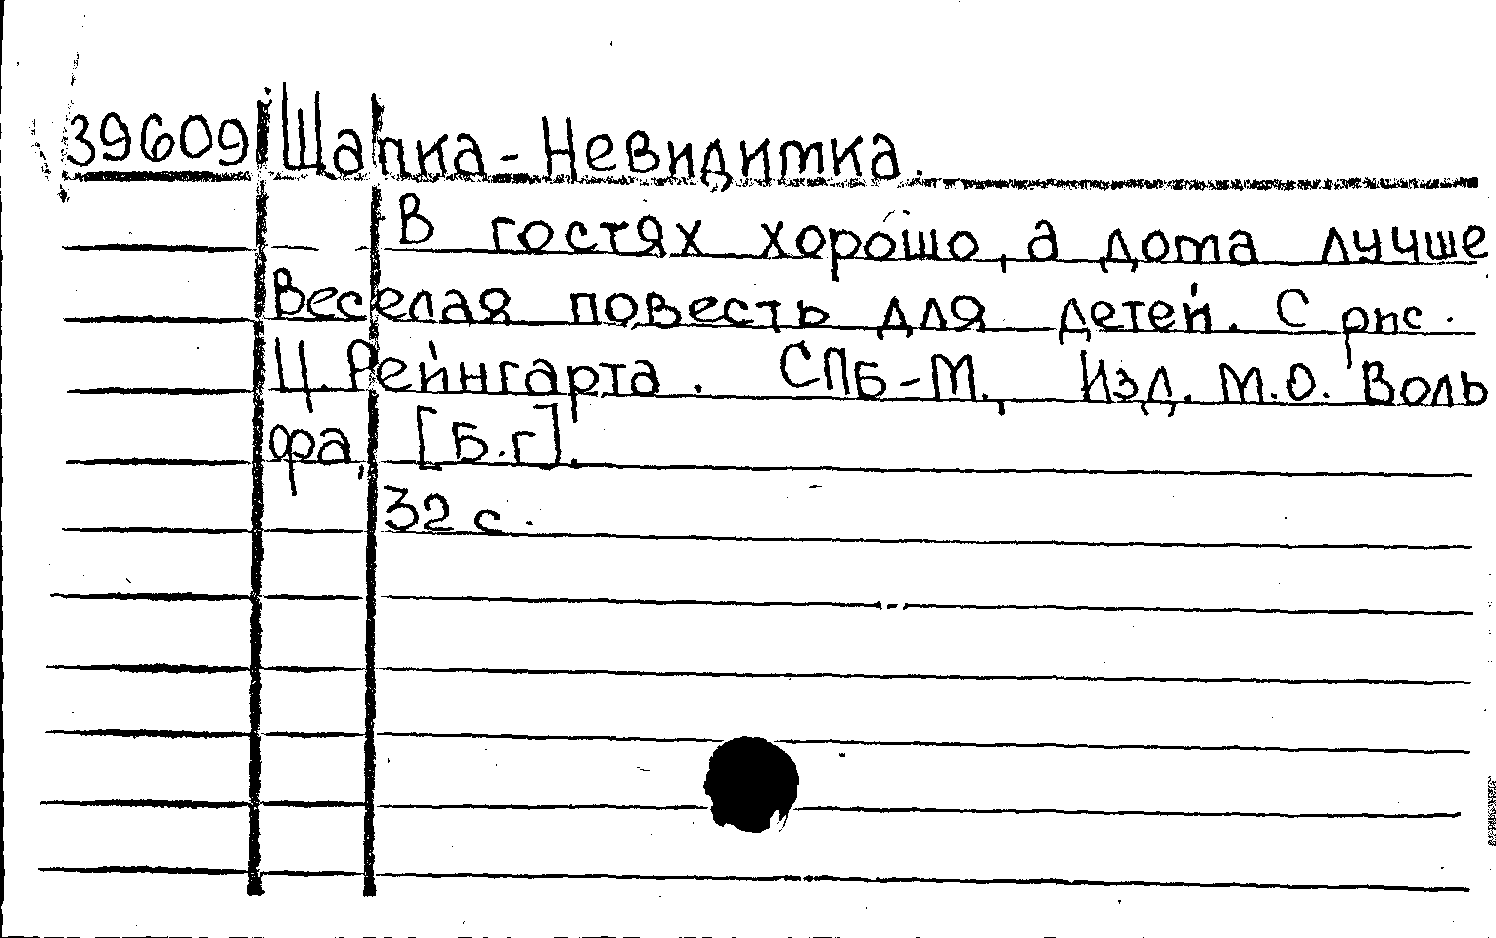 39609 Шапка-Невидимка.
В гостях хорошо, а дома лучше
Веселая повесть для детей. С рис.
Ц. Рейнгарта. СПБ-М., Изд. М.О. Воль
фа, [Б.г].
32 с.